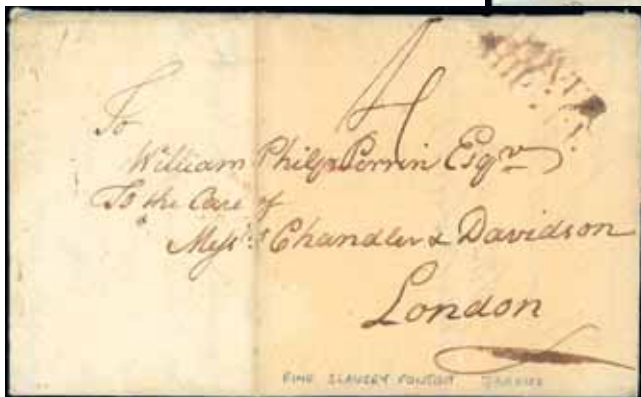 4
To
William Philp Perrin Esqr
To the Care of
Messrs Chandler & Davidson
London
FINE SLAVERY